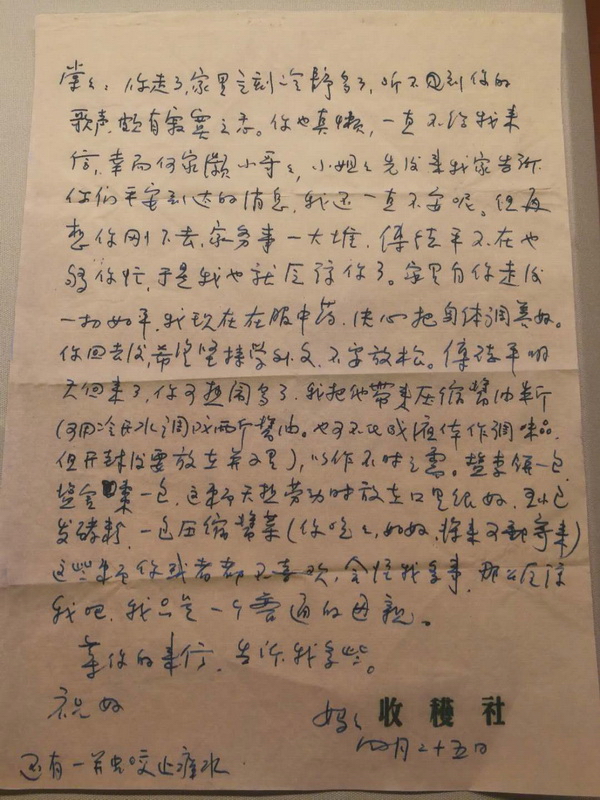 棠棠：你走了，家里立刻冷静多了，听不到你的
歌声，颇有寂寞之意。你也真懒，一直不给我来
信，幸而何家 小哥哥，小姐姐先后来我家告诉
你们平安到达的消息，我还一直不安呢。但再
想你刚下去，家务事一大堆，传 平又不在也
够你忙，于是我也就原谅你了。家里自你走后
一切如平，我现在在服中药，决心把身体调养好。
你回去后，希望坚持学外文，不宜放松。 平明
天回来了，你可热闹多了，我把他带来压缩酱油半斤
（可用冷开水调成两斤酱油。也可不化成液体作调味品，
但开封后要放在 里），以作不时之需。 一包
盐 一包，这东西天热劳动时放在口里很好，五小包
发酵粉，一包压缩酱菜（你吃吃，如好，将来可寄来）
这些东西你或者都不喜欢，会怪我多事，那么原谅
我吧，我只是一个普通的母亲。
等你的来信，告诉我多些。
祝好
妈妈 收穫社
四月二十五日
还有一 虫咬止痒水